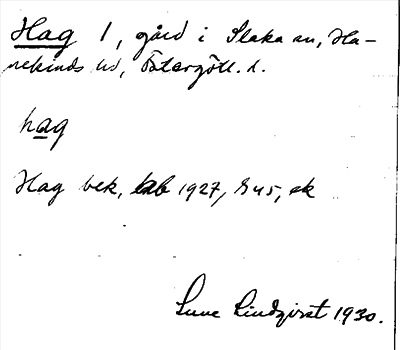 Hag 1, gård i Slaka sn, Ha-
nekinds hd, Östergötl. l.
hag
Hag bek, 1927, ek
Sune Lindqvist 1930.